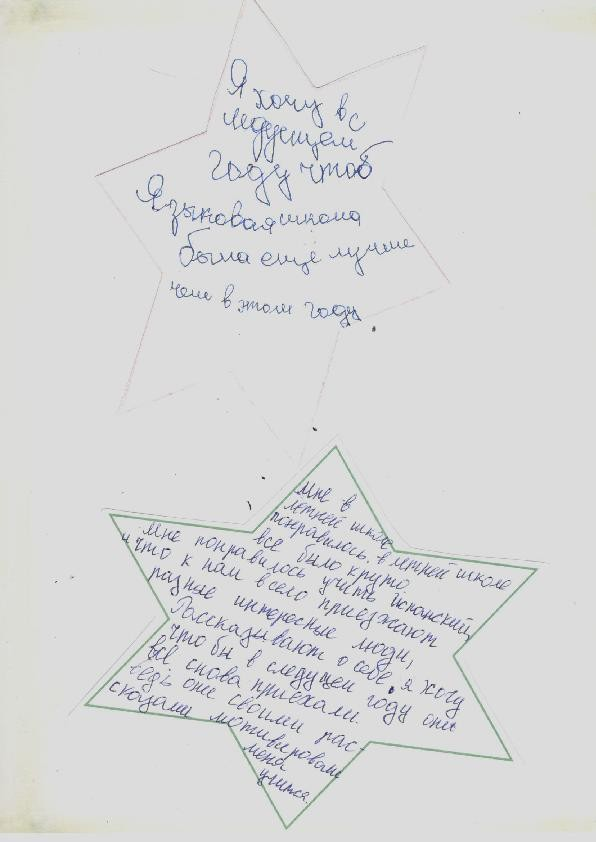 Я хочу в с
ледующем
году чтоб
Языковая школа
была ещё лучше
чем в этом году
мне в
летней школе
понравилось. в летней школе
все было круто
мне понравилось учить испанский,
и что к нам в село приезжают
разные интересные люди,
Рассказывают о себе. я хочу
что бы в следущем году они
все снова приехали
ведь они своими рас-
сказами мотивировали
меня
учится.